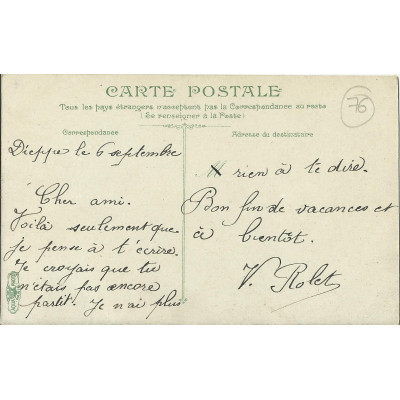 CARTE POSTALE
Tous les pays étrangers n'acceptent pas la Correspondance au recto
(Se renseigner à la Poste)
Correspondance
Adresse du destinataire
76
Dieppe le 6 septembre
Cher ami.
Voilà seulement que
je pense à t'écrire.
Je croyais que tu
n'étais pas encore
partit. Je n'ai plus
rien à te dire.
Bon fin de vacances et
à bientôt.
V. Rolet